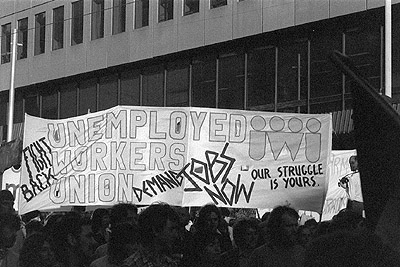 FIGHT
BACK
UNEMPLOYED
WORKERS
UNION
DEMAND
JOBS
NOW
OUR STRUGGLE
IS YOURS.